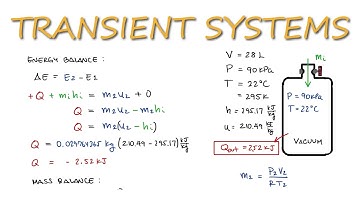 TRANSIENT SYSTEMS
ENERGY BALANCE :
ΔE = E2 - E1
+Q + mihi = m2u2 + 0
Q = m2u2 - m2hi
Q = m2(u2 - hi)
Q = 0.02976436J kg (210.49 - 295.17) kJ/kg
Q = - 2.52 kJ
MASS BALANCE :
V = 28 L
P = 90 kPa
T = 22°C
= 295K
h = 295.17 kJ/kg
u = 210.49 kJ/kg
Qout = 2.52 kJ
m2 = P2V2 / RT2
mi
P = 90 kPa
T = 22°C
VACUUM